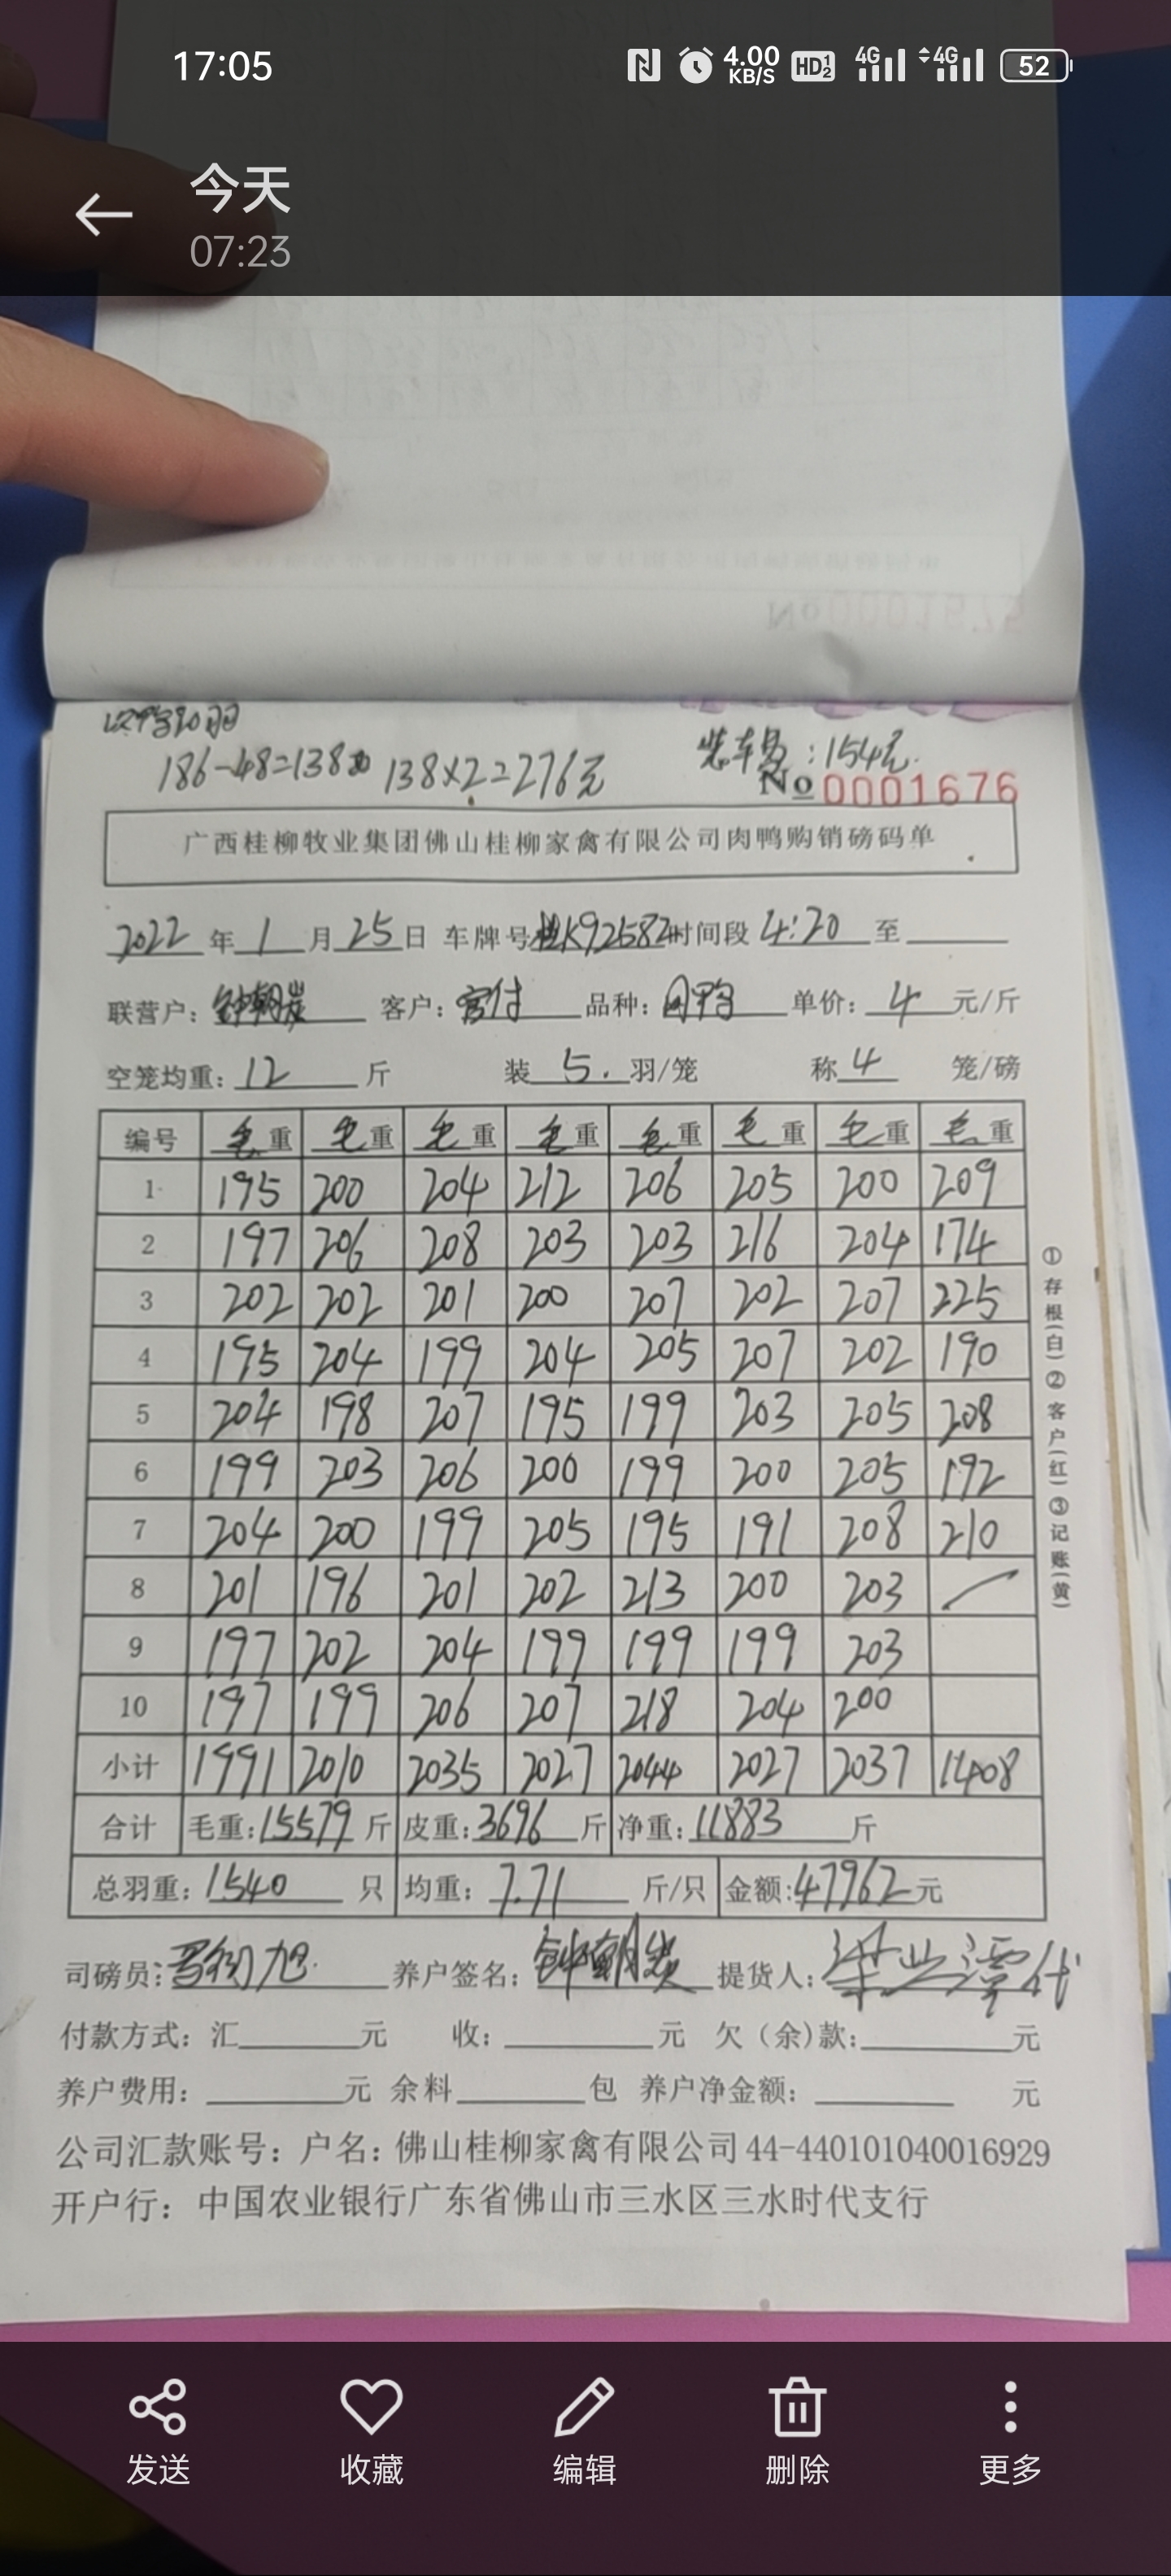 17:05 4.00 KB/S HD 1 2 4G 4G 52
今天
07:23
186-48=138 138×2=276元
装车费:154元.
No 0001676
广西桂柳牧业集团佛山桂柳家禽有限公司肉鸭购销磅码单
2022年1月25日 车牌号 K92582 时间段 4:20 至
联营户: 客户: 品种: 单价: 4 元/斤
空笼均重: 12 斤 装 5. 羽/笼 称 4 笼/磅
编号 毛重 毛重 毛重 毛重 毛重 毛重 毛重 毛重
1 195 200 204 212 206 205 200 209
2 197 206 208 203 203 216 204 174
3 202 202 201 200 207 202 207 225
4 195 204 199 204 205 207 202 190
5 204 198 207 195 199 203 205 208
6 199 203 206 200 199 200 205 192
7 204 200 199 205 195 191 208 210
8 201 196 201 202 213 200 203
9 197 202 204 199 199 199 203
10 197 199 206 207 218 204 200
小计 1991 2010 2035 2027 2044 2027 2037 1408
合计 毛重:15579斤 皮重:3696斤 净重:11883斤
总羽重:1540只 均重:7.71斤/只 金额:47962元
司磅员: 养户签名: 提货人:
付款方式:汇 元 收: 元 欠(余)款: 元
养户费用: 元 余料 包 养户净金额: 元
公司汇款账号:户名:佛山桂柳家禽有限公司 44-440101040016929
开户行:中国农业银行广东省佛山市三水区三水时代支行
①存根(白)②客户(红)③记账(黄)
发送 收藏 编辑 删除 更多